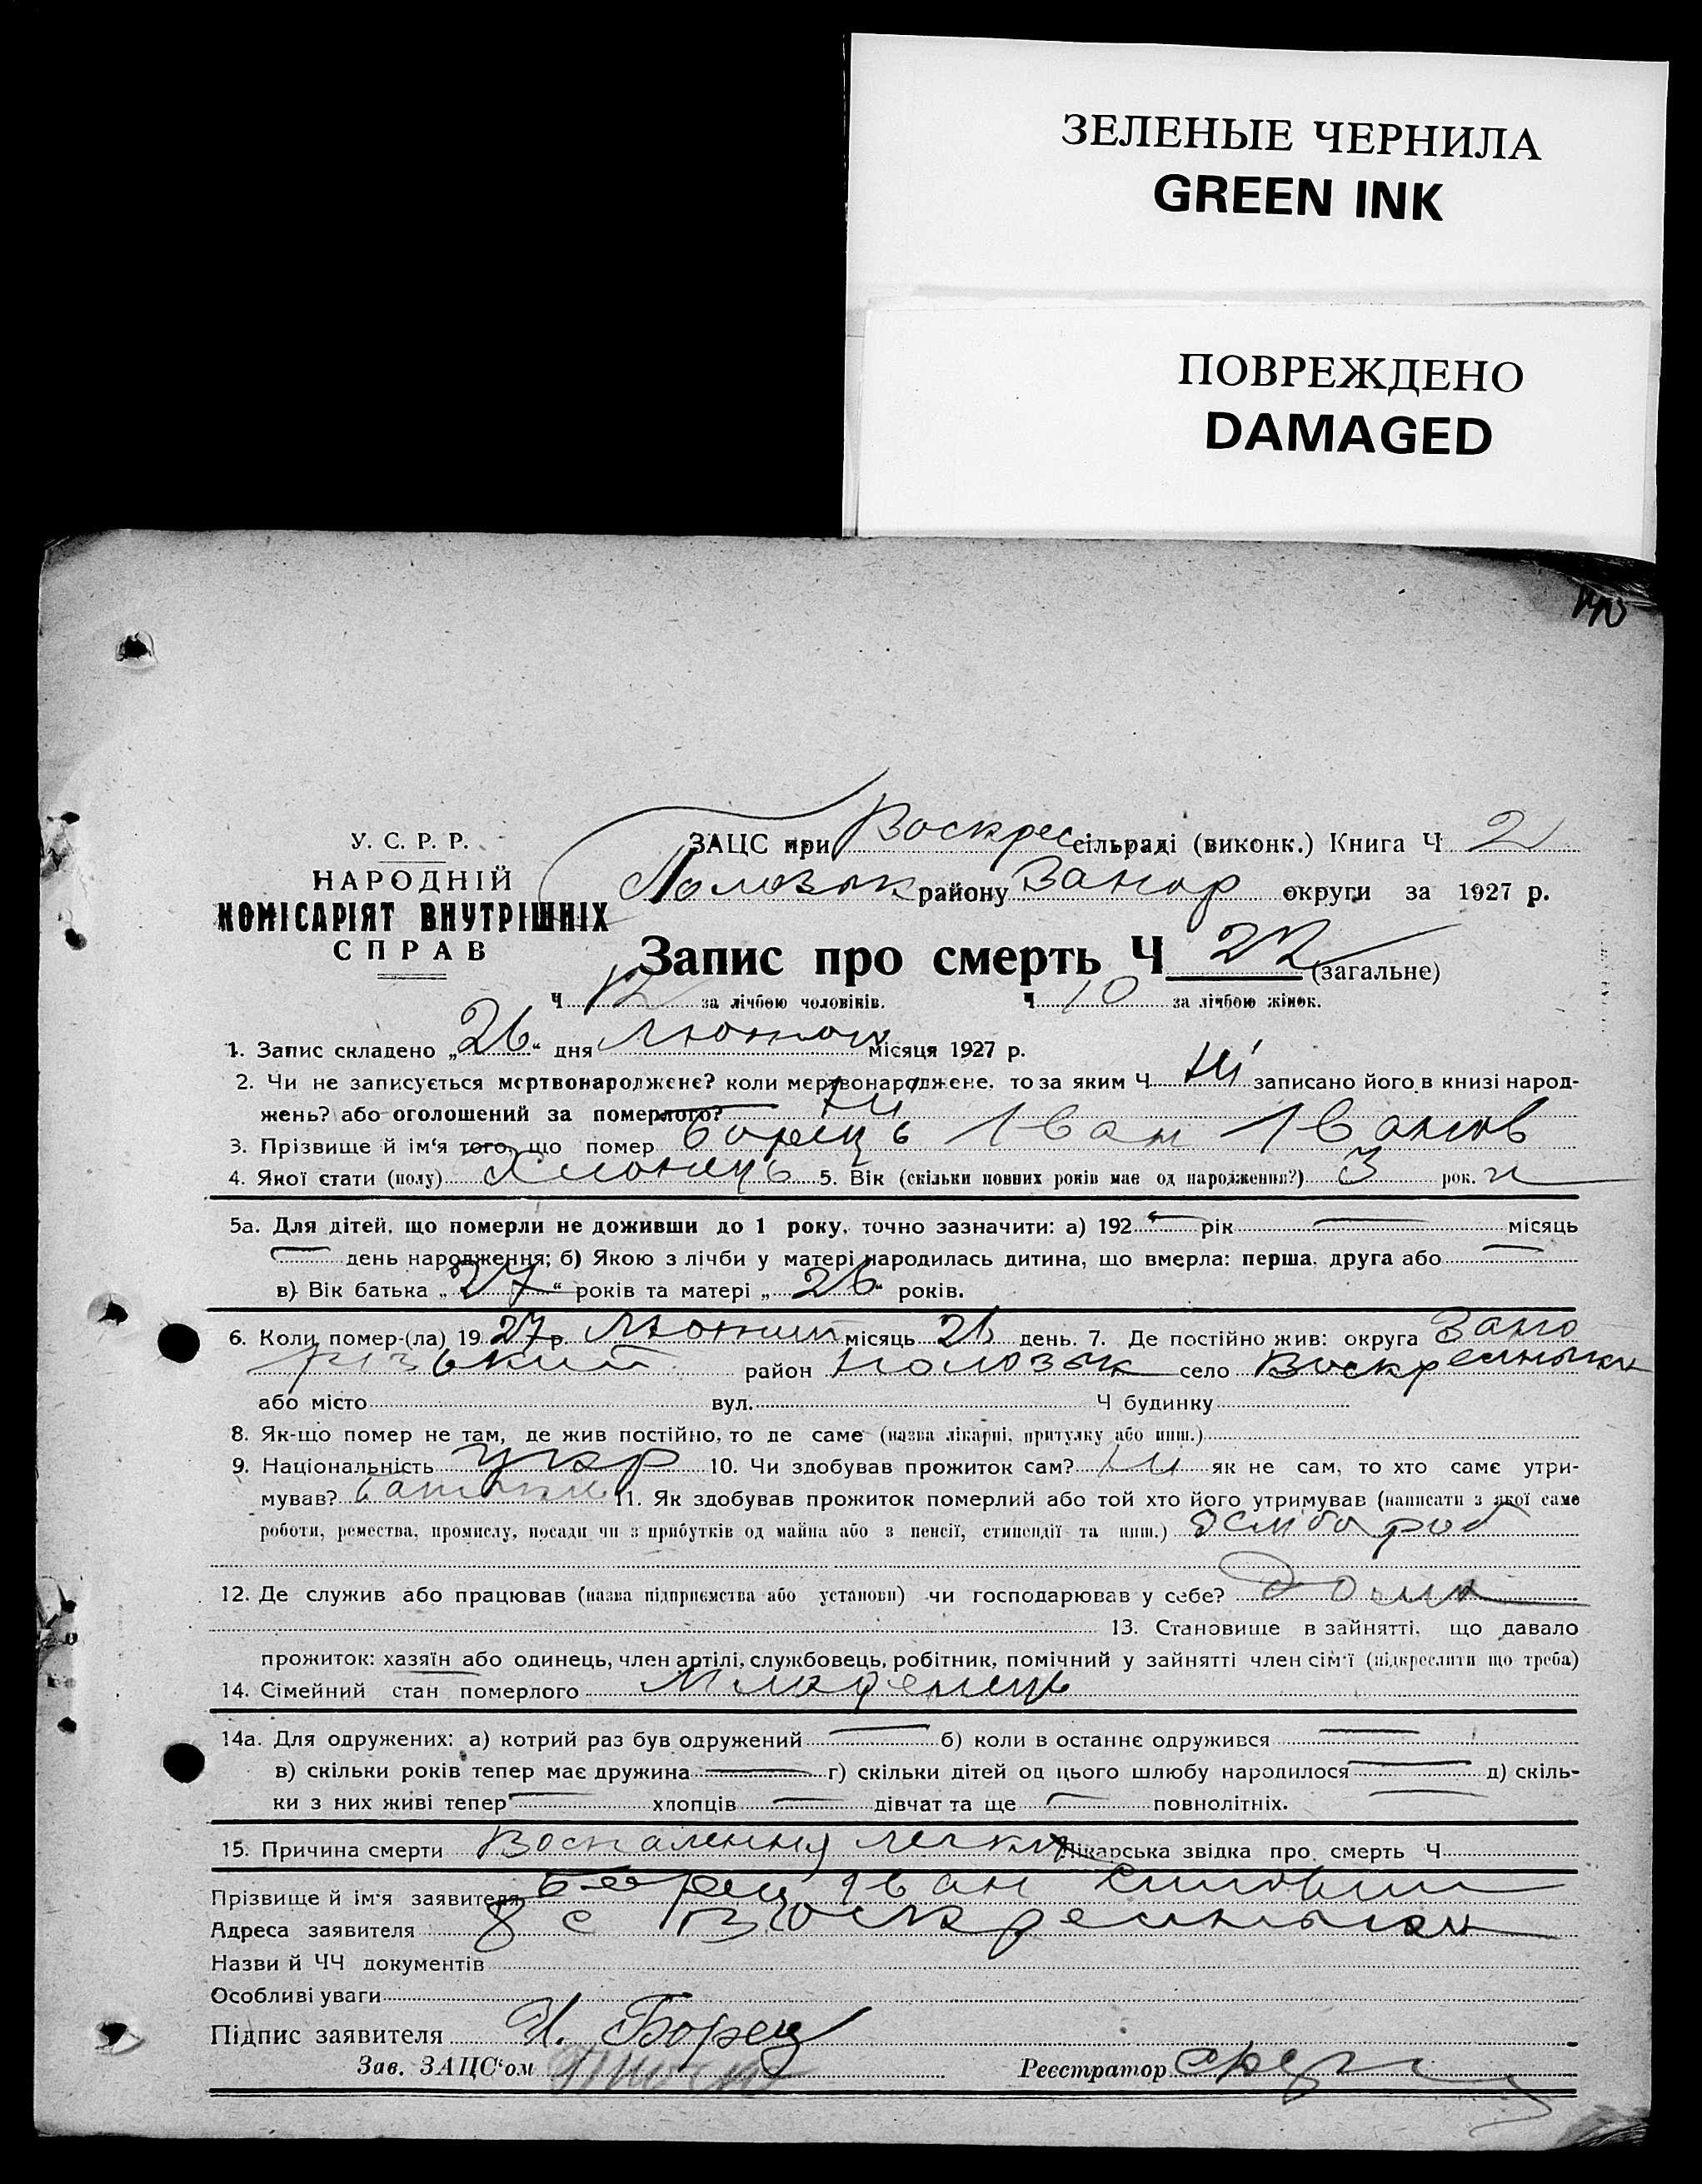 ЗЕЛЕНЫЕ ЧЕРНИЛА
GREEN INK
ПОВРЕЖДЕНО
DAMAGED
У. С. Р. Р.
НАРОДНІЙ
КОМІСАРІЯТ ВНУТРІШНІХ
СПРАВ
ЗАЦС при Воскрес сільраді (виконк.) Книга Ч 2
району Запор округи за 1927 р.
Запис про смерть Ч 22 (загальне)
Ч 12 за лічбою чоловіків. Ч 10 за лічбою жінок.
1. Запис складено „26“ дня місяця 1927 р.
2. Чи не записується мертвонароджене? коли мертвонароджене, то за яким Ч ні записано його в книзі народ-
жень? або оголошений за померлого? ні
3. Прізвище й ім'я того, що помер Борець Іван Іванов
4. Якої стати (полу) Хлопець 5. Вік (скільки повних років має од народження?) 3 рок. и
5а. Для дітей, що померли не доживши до 1 року, точно зазначити: а) 192 рік місяць
день народження; б) Якою з лічби у матері народилась дитина, що вмерла: перша, друга або
в) Вік батька „27“ років та матері „26“ років.
6. Коли помер-(ла) 1927 р. місяць 26 день. 7. Де постійно жив: округа Запо
різький район Пологзьк село
або місто вул. Ч будинку
8. Як-що помер не там, де жив постійно, то де саме (назва лікарні, притулку або инш.)
9. Національність укр 10. Чи здобував прожиток сам? ні як не сам, то хто саме утри-
мував? батьки 11. Як здобував прожиток померлий або той хто його утримував (написати з якої саме
роботи, ремества, промислу, посади чи з прибутків од майна або з пенсії, стипендії та инш.)
12. Де служив або працював (назва підприємства або установи) чи господарював у себе? дома
13. Становище в зайнятті, що давало
прожиток: хазяїн або одинець, член артілі, службовець, робітник, помічний у зайнятті член сім'ї (підкреслити що треба)
14. Сімейний стан померлого Младенець
14а. Для одружених: а) котрий раз був одружений б) коли в останнє одружився
в) скільки років тепер має дружина г) скільки дітей од цього шлюбу народилося д) скіль-
ки з них живі тепер хлопців дівчат та ще повнолітніх.
15. Причина смерти Воспалення легких Лікарська звідка про смерть Ч
Прізвище й ім'я заявителя Борец Іван
Адреса заявителя с
Назви й ЧЧ документів
Особливі уваги
Підпис заявителя И. Борец
Зав. ЗАЦС'ом Реєстратор